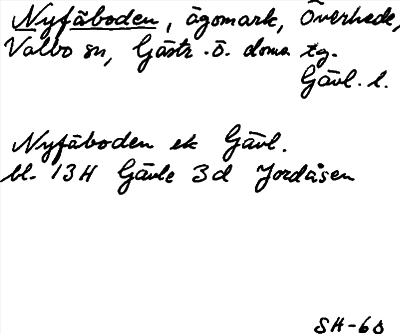 Nyfäboden, ägomark, Överhede,
Valbo sn, Gästr. ö. doms. tg.
Gävl. l.
Nyfäboden ek Gävl.
bl. 13H Gävle 3d Jordåsen
SH-60